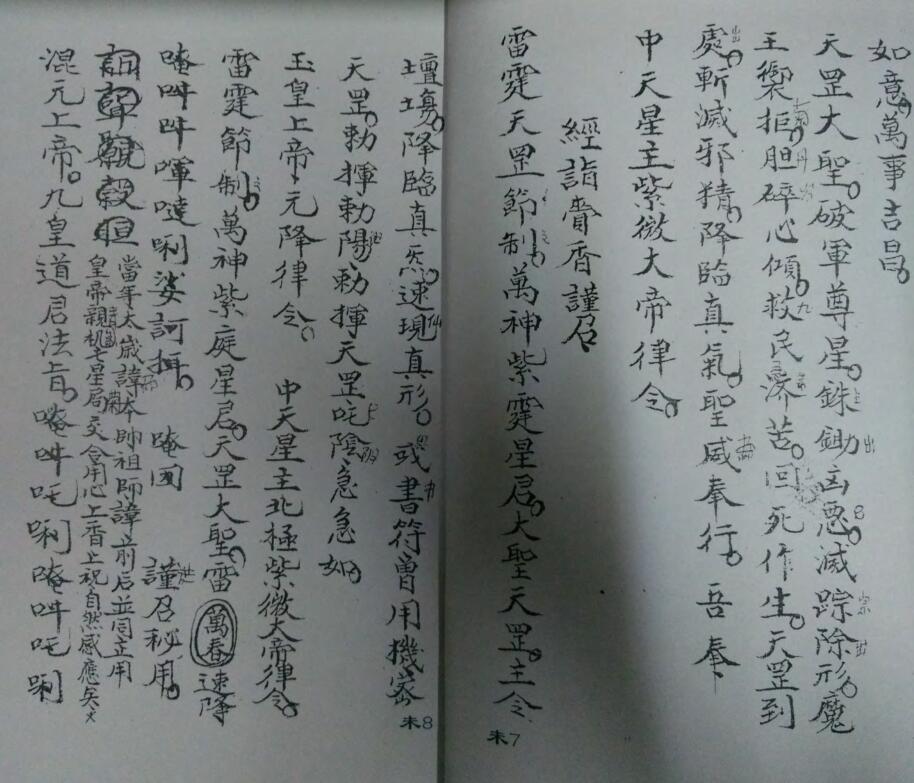 如意。萬事吉昌。
天罡大聖。破軍尊星。銖鋤凶惡。滅踪除形。魔
王禦拒。胆碎心傾。救民濟苦。回死作生。天罡到
處。斬滅邪精。降臨真氣。聖威奉行。吾奉
中天星主紫微大帝律令。
經詣賫香謹召
雷霆天罡節制。萬神紫霆星君。大聖天罡。主令
未7
壇場。降臨真炁。速現真形。或書符曾用機密
天罡。勅揮勅陽。勅揮天罡吒陰急急如
玉皇上帝元降律令。 中天星主北極紫微大帝律令。
雷霆節制。萬神紫庭星君。天罡大聖。雷 萬春 速降
唵吽吽唓噠唎娑訶 唵囯 謹召秘用。
當年太歲諱本師祖師諱前后並同立用
皇帝親机七星局交令用心上香上祝自然感應矣
混元上帝。九皇道君法旨。唵吽吒唎唵吽吒唎
未8